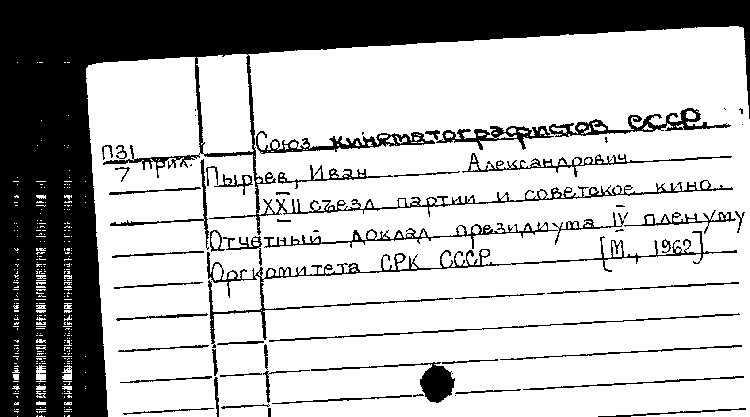 Союз кинематографистов СССР.
П31
7 прил.
Пырьев, Иван Александрович.
XXII съезд партии и советское кино.
Отчетный доклад президиума IV пленуму
Оргкомитета СРК СССР. [М., 1962].